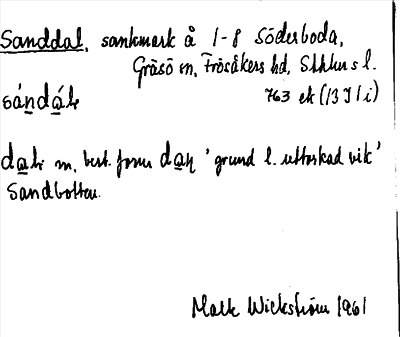 Sanddal, sankmark å 1-8 Söderboda,
Gräsö sn, Frösåkers hd, Sthlms l.
sándál 763 ek (13 I 1 i)
dal m, best. form dan 'grund l. uttorkad vik'
Sandbotten.
Mats Wickström 1961